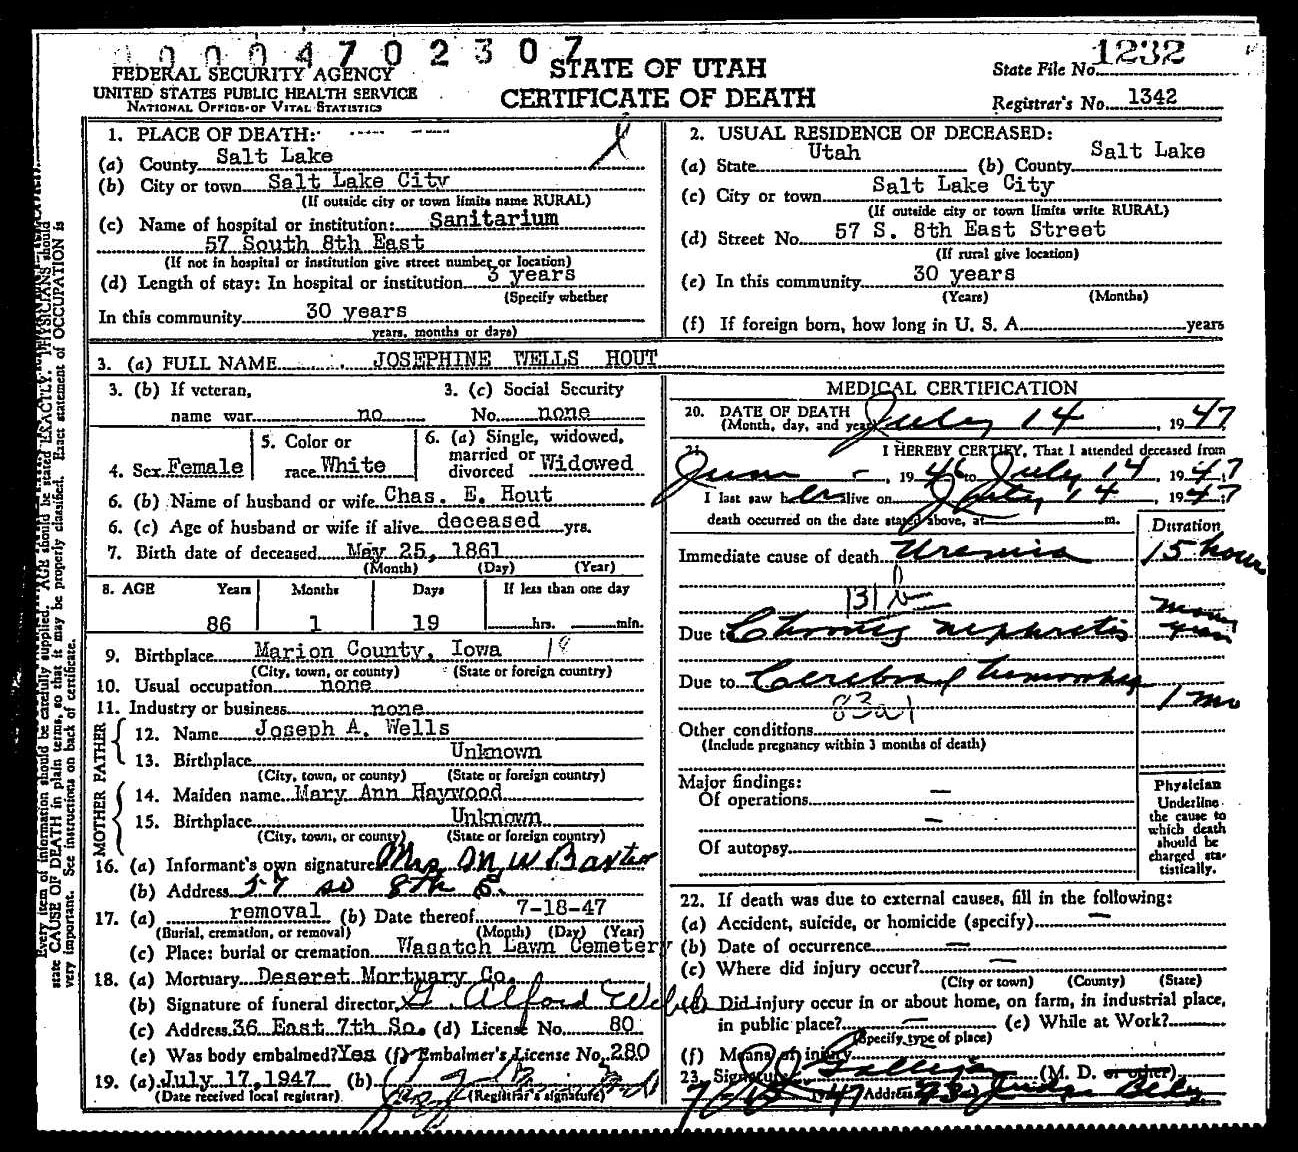 00004702307
FEDERAL SECURITY AGENCY
UNITED STATES PUBLIC HEALTH SERVICE
NATIONAL OFFICE OF VITAL STATISTICS
STATE OF UTAH
CERTIFICATE OF DEATH
State File No. 1232
Registrar's No. 1342
1. PLACE OF DEATH:
(a) County Salt Lake
(b) City or town Salt Lake City
(If outside city or town limits name RURAL)
(c) Name of hospital or institution: Sanitarium
57 South 8th East
(If not in hospital or institution give street number or location)
(d) Length of stay: In hospital or institution 3 years
(Specify whether
In this community 30 years
years, months or days)
2. USUAL RESIDENCE OF DECEASED:
(a) State Utah (b) County Salt Lake
(c) City or town Salt Lake City
(If outside city or town limits write RURAL)
(d) Street No. 57 S. 8th East Street
(If rural give location)
(e) In this community 30 years
(Years) (Months)
(f) If foreign born, how long in U. S. A. years
3. (a) FULL NAME JOSEPHINE WELLS HOUT
3. (b) If veteran, 3. (c) Social Security
name war no No. none
4. Sex Female
5. Color or
race White
6. (a) Single, widowed,
married or
divorced Widowed
6. (b) Name of husband or wife Chas. E. Hout
6. (c) Age of husband or wife if alive deceased yrs.
7. Birth date of deceased May 25, 1861
(Month) (Day) (Year)
8. AGE Years Months Days If less than one day
86 1 19 hrs. min.
9. Birthplace Marion County, Iowa
(City, town, or county) (State or foreign country)
10. Usual occupation none
11. Industry or business none
FATHER
12. Name Joseph A. Wells
13. Birthplace Unknown
(City, town, or county) (State or foreign country)
MOTHER
14. Maiden name Mary Ann Haywood
15. Birthplace Unknown
(City, town, or county) (State or foreign country)
16. (a) Informant's own signature Mrs M W Baxter
(b) Address 57 so 8th E.
17. (a) removal (b) Date thereof 7-18-47
(Burial, cremation, or removal) (Month) (Day) (Year)
(c) Place: burial or cremation Wasatch Lawn Cemetery
18. (a) Mortuary Deseret Mortuary Co.
(b) Signature of funeral director
(c) Address 36 East 7th So. (d) License No. 80
(e) Was body embalmed? Yes (f) Embalmer's License No. 280
19. (a) July 17, 1947 (b)
(Date received local registrar) (Registrar's signature)
MEDICAL CERTIFICATION
20. DATE OF DEATH
(Month, day, and year) July 14, 1947
21. I HEREBY CERTIFY, That I attended deceased from
June -, 1946 to July 14 1947
I last saw her alive on July 14 1947
death occurred on the date stated above, at m.
Duration
Immediate cause of death Uremia 15 hours
131 b
Due to Chronic nephritis many years
Due to Cerebral hemorrhage 1 mo
83a1
Other conditions
(Include pregnancy within 3 months of death)
Major findings:
Of operations —
—
Of autopsy
Physician
Underline
the cause to
which death
should be
charged sta-
tistically.
22. If death was due to external causes, fill in the following:
(a) Accident, suicide, or homicide (specify) —
(b) Date of occurrence —
(c) Where did injury occur? —
(City or town) (County) (State)
(d) Did injury occur in or about home, on farm, in industrial place,
in public place? — (e) While at Work?
(Specify type of place)
(f) Means of injury
23. Signature (M. D. or other)
1947 Address Judge Bldg.
Every item of information should be carefully supplied. AGE should be stated EXACTLY. PHYSICIANS should
state CAUSE OF DEATH in plain terms, so that it may be properly classified. Exact statement of OCCUPATION is
very important. See instructions on back of certificate.